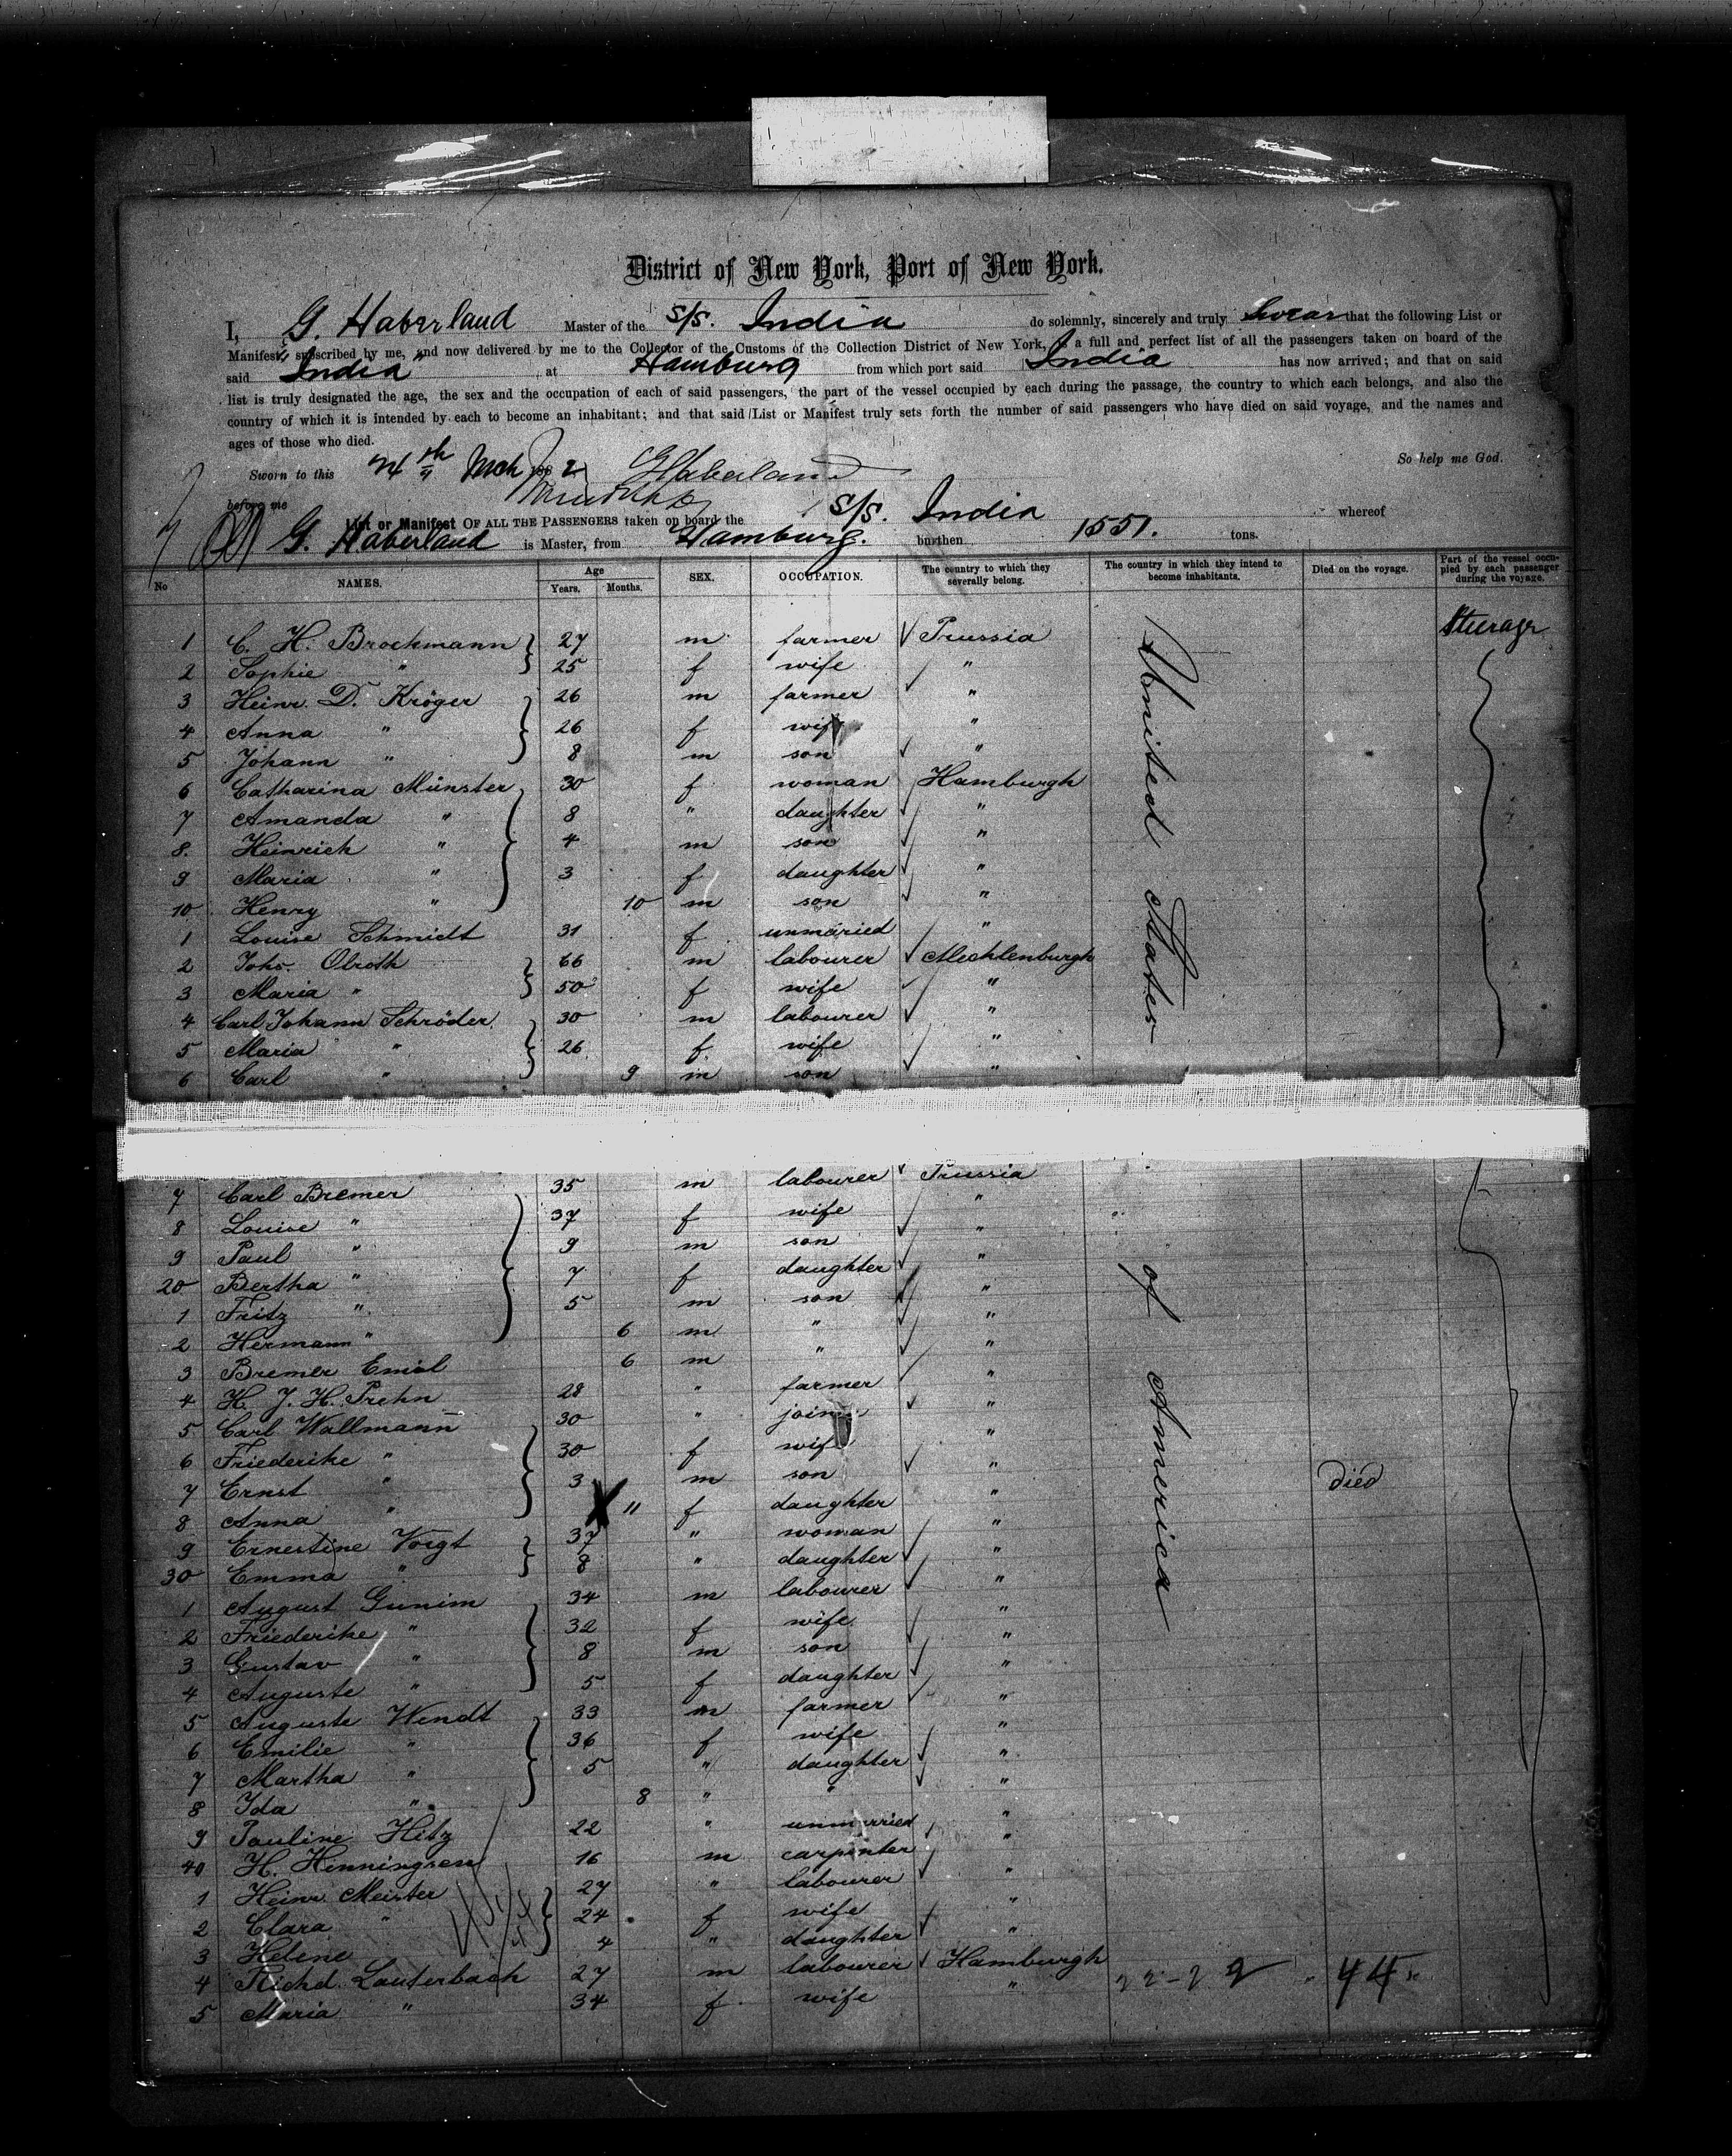 District of New York, Port of New York.
I, G. Haberland Master of the S/S. India do solemnly, sincerely and truly Swear that the following List or
Manifest, subscribed by me, and now delivered by me to the Collector of the Customs of the Collection District of New York, is a full and perfect list of all the passengers taken on board of the
said "India" at Hamburg from which port said India has now arrived; and that on said
list is truly designated the age, the sex and the occupation of each of said passengers, the part of the vessel occupied by each during the passage, the country to which each belongs, and also the
country of which it is intended by each to become an inhabitant; and that said List or Manifest truly sets forth the number of said passengers who have died on said voyage, and the names and
ages of those who died.
So help me God.
Sworn to this 24th Mch 188 2 G Haberland
before me
List or Manifest OF ALL THE PASSENGERS taken on board the S/S. India whereof
G. Haberland is Master, from Hamburg. burthen 1551. tons.
No NAMES. Age Years. Months. SEX. OCCUPATION. The country to which they severally belong. The country in which they intend to become inhabitants. Died on the voyage. Part of the vessel occupied by each passenger during the voyage.
Steerage
United States of America
1 C. H. Brockmann 27 m farmer Prussia
2 Sophie " 25 f wife "
3 Heinr. D. Kröger 26 m farmer "
4 Anna " 26 f wife "
5 Johann " 8 m son "
6 Catharina Münster 30 f woman Hamburgh
7 Amanda " 8 " daughter "
8. Heinrich " 4 m son "
9 Maria " 3 f daughter "
10 Henry " 10 m son "
1 Louise Schmidt 31 f unmaried "
2 Johs. Olroth 66 m labourer Mecklenburgh
3 Maria " 50 f wife "
4 Carl Johann Schröder 30 m labourer "
5 Maria " 26 f wife "
6 Carl " 9 m son "
7 Carl Bremer 35 m labourer Prussia
8 Louise " 37 f wife "
9 Paul " 9 m son "
20 Bertha " 7 f daughter "
1 Fritz " 5 m son "
2 Hermann " 6 m " "
3 Bremer Emil 6 m " "
4 H. J. H. Prehn 28 " farmer "
5 Carl Wallmann 30 " joiner "
6 Friederike " 30 f wife "
7 Ernst " 3 m son " died
8 Anna " 11 f daughter "
9 Ernestine Voigt 37 " woman "
30 Emma " 8 " daughter "
1 August Gunim 34 m labourer "
2 Friederike " 32 f wife "
3 Gustav " 8 m son "
4 Auguste " 5 f daughter "
5 Auguste Wendt 33 m farmer "
6 Emilie " 36 f wife "
7 Martha " 5 " daughter "
8 Ida " 8 " " "
9 Pauline Hitz 22 " unmarried "
40 H. Henningsen 16 m carpenter "
1 Heinr. Meister 27 " labourer "
2 Clara " 24 f wife "
3 Helene 4 " daughter "
4 Richd. Lauterbach 27 m labourer Hamburgh
5 Maria " 34 f wife "
44